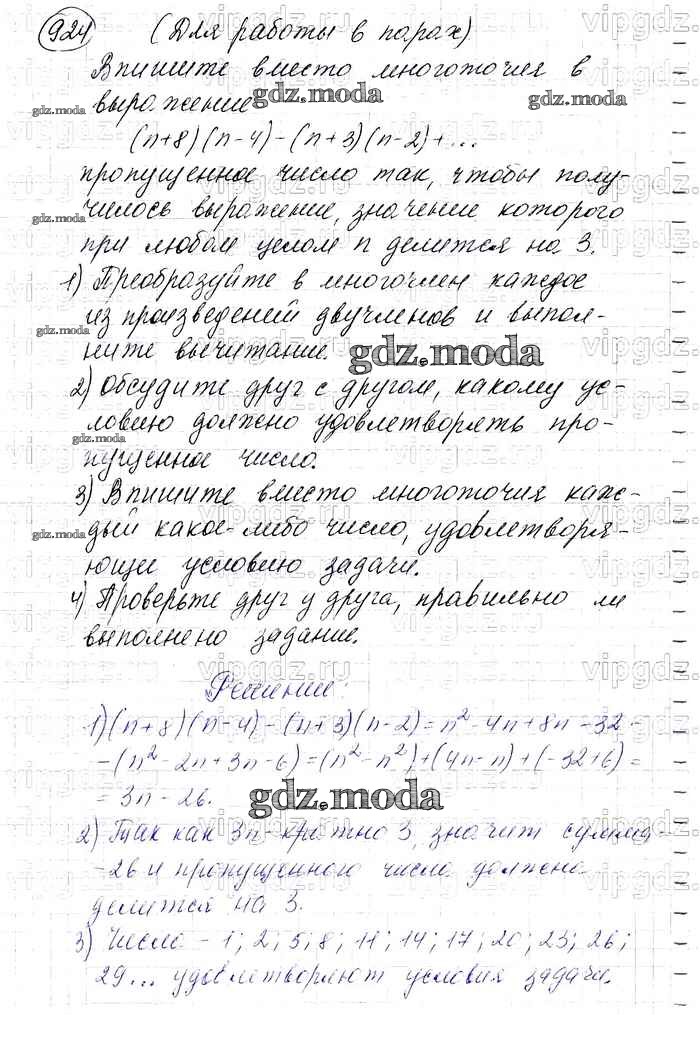 924 (Для работы в парах)
Впишите вместо многоточия в
выражение
(n+8)(n-4)-(n+3)(n-2)+...
пропущенное число так, чтобы полу-
чилось выражение, значение которого
при любом целом n делится на 3.
1) Преобразуйте в многочлен каждое
из произведений двучленов и выпол-
ните вычитание.
2) Обсудите друг с другом, какому ус-
ловию должно удовлетворять про-
пущенное число.
3) Впишите вместо многоточия каж-
дый какое-либо число, удовлетворя-
ющее условию задачи.
4) Проверьте друг у друга, правильно ли
выполнено задание.
Решение:
1)(n+8)(n-4)-(n+3)(n-2)=n²-4n+8n-32-
-(n²-2n+3n-6)=(n²-n²)+(4n-n)+(-32+6)=
=3n-26.
2) Так как 3n кратно 3, значит сумма
-26 и пропущенного числа должна
делится на 3.
3) Числа -1; 2; 5; 8; 11; 14; 17; 20; 23; 26;
29... удовлетворяют условия задачи.
gdz.moda
vipgdz.ru